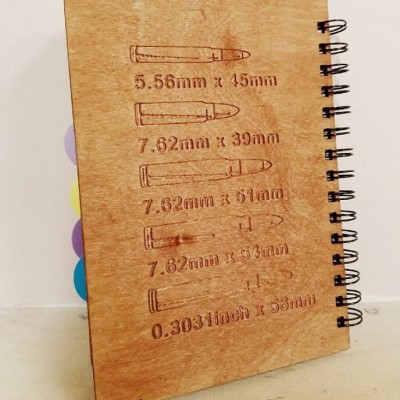 5.56mm x 45mm
7.62mm x 39mm
7.62mm x 51mm
7.62mm x 53mm
0.3031inch x 58mm